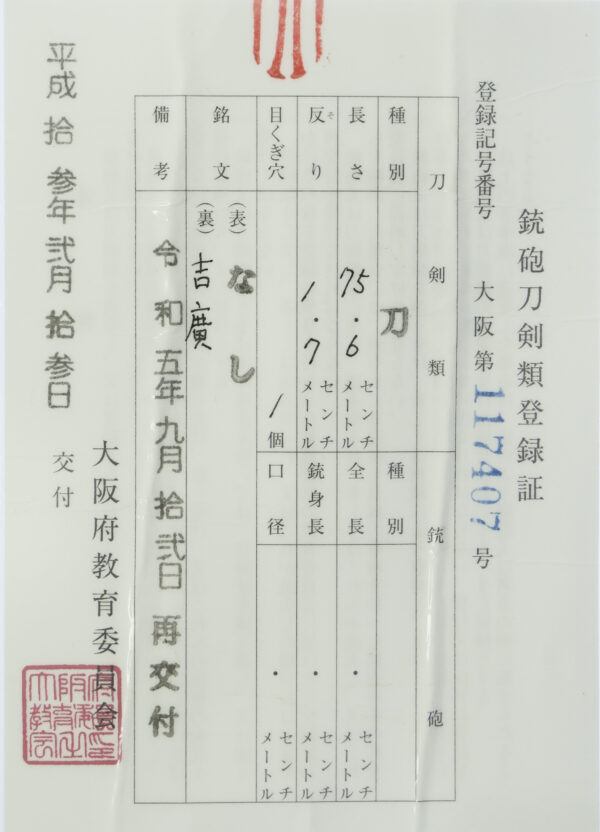 銃砲刀剣類登録証
登録記号番号 大阪第117407号
刀剣類 銃砲
種別 刀 種別
長さ 75.6 センチメートル 全長 ・ センチメートル
反り そ 1.7 センチメートル 銃身長 ・ センチメートル
目くぎ穴 1個 口径 ・ センチメートル
銘文 (表) なし
(裏) 吉廣
備考 令和五年九月拾弐日再交付
大阪府教育委員会
平成拾参年弐月拾参日 交付